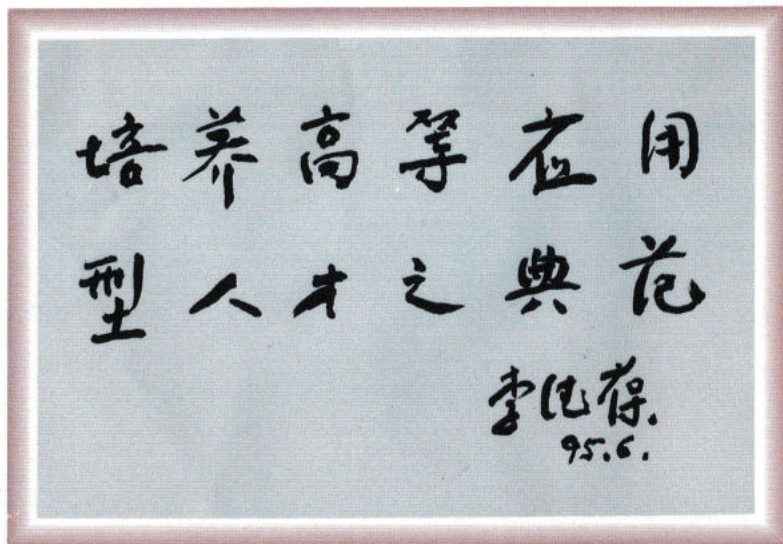 培养高等应用
型人才之典范
李德葆
95.6.